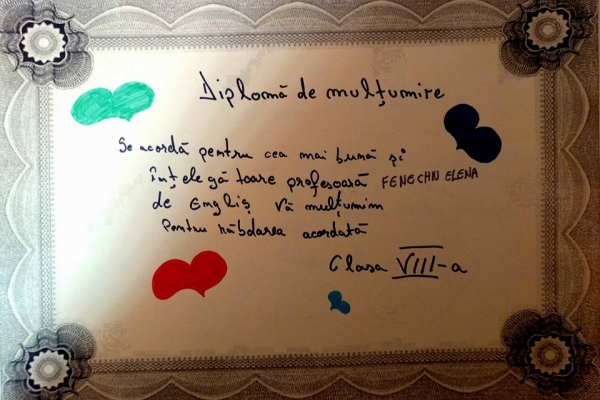 Diplomă de mulțumire
Se acordă pentru cea mai bună și
înțelegătoare profesoară FENECHIN ELENA
de Engliș Vă mulțumim
Pentru răbdarea acordată
Clasa VIII-a